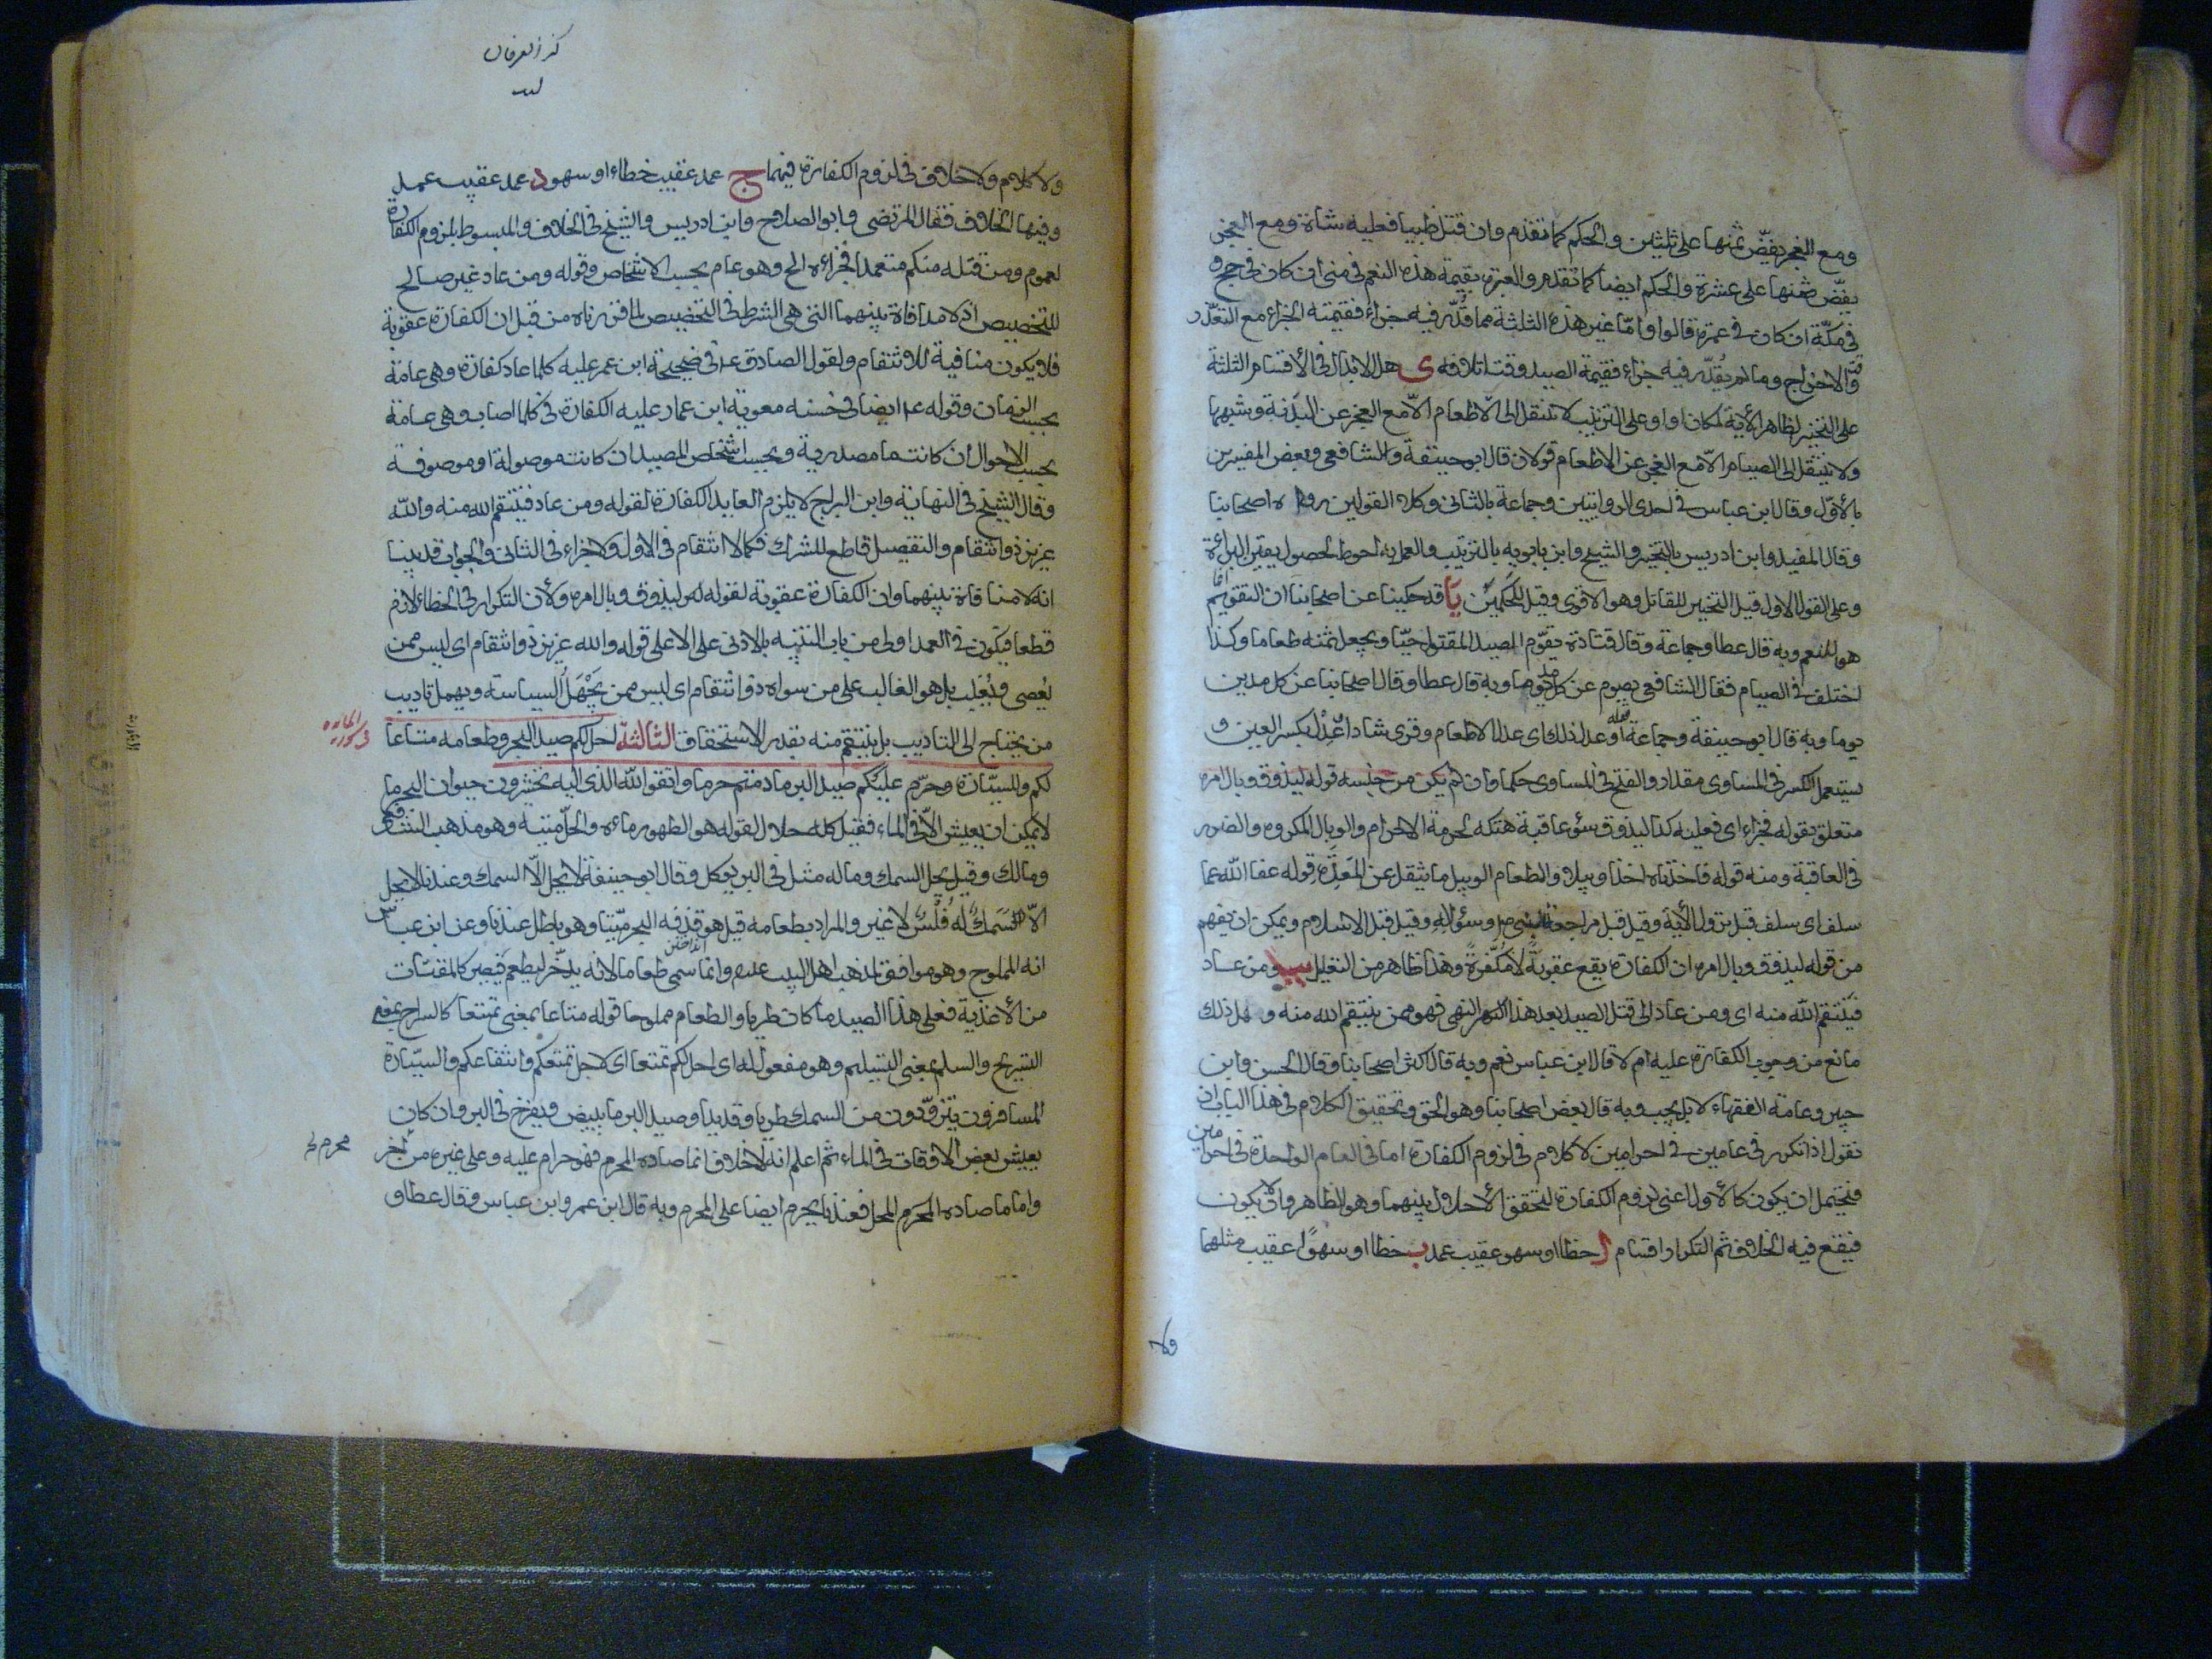 ومع العجز يفضّ ثمنها على ثلثين والحكم كما تقدم وان قتل ظبيا فعليه شاة ومع العجز
يفضّ ثمنها على عشرة والحكم ايضا كما تقدم والعبرة بقيمة هذه النعم في منى ان كان في حج و
في مكّة ان كان في عمرة قالوا وامّا غير هذه الثلثة مما قُدّر فيه جزاء فقيمته الجزاء مع التعذّر
وقت الاخراج وما لم يُقدّر فيه جزاء فقيمة الصيد وقت اتلافه ى هل الابدال في الأقسام الثلثة
على التخيير لظاهر الأية لمكان او او على الترتيب لا تنتقل الى الاطعام الاّ مع العجز عن البدنة وشبهها
ولا ينتقل الى الصيام الاّ مع العجز عن الاطعام قولان قال ابو حنيفة والشافعي وبعض المفسرين
بالأوّل وقال ابن عباس في احدى الروايتين وجماعة بالثاني وكلا القولين رواه اصحابنا
وقال المفيد وابن ادريس بالتخيير والشيخ وابن بابويه بالترتيب والعمل به احوط لحصول يقين البراءة
وعلى القول الاول قيل التخيير للقاتل وهو الاقوى وقيل للحَكَمين يا قد حكينا عن اصحابنا ان التقويم انما
هو للنعم وبه قال عطا وجماعة وقال قتادة يقوّم الصيد المقتول حيّا ويجعل ثمنه طعاما وكذا
اختلف في الصيام فقال الشافعي يصوم عن كل مدّ يوما وبه قال عطا وقال اصحابنا عن كل مدين
يوما وبه قال ابو حنيفة وجماعة قوله او عدل ذلك اى عدل الاطعام وقرئ شاذا عِدْل بكسر العين و
يستعمل الكسر في المساوى مقدارا والفتح في المساوى حكما وان لم يكن من جنسه قوله ليذوق وبال امره
متعلق بقوله فجزاء اى فعليه كذا ليذوق سؤ عاقبة هتكه لحرمة الاحرام والوبال المكروه والضرر
في العاقبة ومنه قوله فاخذناه اخذا وبيلا والطعام الوبيل ما يثقل عن المَعِدَة قوله عفا الله عما
سلف اى سلف قبل نزول الأية وقيل قبل مراجعة النبي ص وسؤاله وقيل قبل الاسلام ويمكن ان يفهم
من قوله ليذوق وبال امره ان الكفارة يقع عقوبةً لا مُكَفّرةً وهذا ظاهر من التعليل يب ومن عاد
فينتقم الله منه اى ومن عاد الى قتل الصيد بعد هذا النهى فهو ممن ينتقم الله منه وهل ذلك
مانع من وجوب الكفارة عليه ام لا قال ابن عباس نعم وبه قال اكثر اصحابنا وقال الحسن وابن
جبير وعامة الفقهاء لا بل يجب وبه قال بعض اصحابنا وهو الحق وتحقيق الكلام في هذا الباب ان
نقول اذا تكرر في عامين في احرامين لا كلام في لزوم الكفارة اما في العام الواحد في احرامين
فيحتمل ان يكون كالأول اعنى لزوم الكفارة لتحقق الأحلال بينهما وهو الظاهر وان لا يكون
فيقع فيه الخلاف ثم التكرار اقسام ا خطا او سهو عقيب عمد ب خطا او سهوًا عقيب مثلهما
ولا
كنز العرفان
ولا كلام ولا خلاف في لزوم الكفارة فيهما ج عمد عقيب خطاء او سهو د عمد عقيب عمد
وفيها الخلاف فقال المرتضى وابو الصلاح وابن ادريس والشيخ في الخلاف والمبسوط بلزوم الكفارة
لعموم ومن قتله منكم متعمدا فجزاءه الح وهو عام بحسب الاشخاص وقوله ومن عاد غير صالح
للتخصيص اذ لا منافاة بينهما التى هى الشرط في التخصيص لما قررناه من قبل ان الكفارة عقوبة
فلا يكون منافية للانتقام ولقول الصادق ع في صحيحة ابن عمير عليه كلما عاد كفارة وهى عامة
بحسب الزمان وقوله ع ايضا في حسنه معوية ابن عمار عليه الكفارة في كل ما اصاب وهى عامة
بحسب الاحوال ان كانت ما مصدرية وبحسب اشخاص الصيد ان كانت موصولة او موصوفة
وقال الشيخ في النهاية وابن البراج لا يلزم العايد الكفارة لقوله ومن عاد فينتقم الله منه والله
عزيز ذو انتقام والتفصيل قاطع للشرك فكما لا انتقام في الاول ولا جزاء في الثاني والجواب قد بينا
انه لا منافاة بينهما وان الكفارة عقوبة لقوله له ليذوق وبال امره ولأن التكرار في الخطاء لازم
قطعا فيكون في العمد اولى من باب التنبيه بالادنى على الاعلى قوله والله عزيز ذو انتقام اى ليس ممن
يُعصى فيُغلب بل هو الغالب على من سواه ذو انتقام اى ليس ممن يَجْهَل السياسة ويهمل تاديب
من يحتاج الى التاديب بل ينتقم منه بقدر الاستحقاق الثالثة احل لكم صيد البحر وطعامه متاعا
لكم وللسيّارة وحرّم عليكم صيد البر ما دمتم حرما واتقوا الله الذى اليه تحشرون حيوان البحر ما
لا يمكن ان يعيش الاّ في الماء فقيل كله حلال لقوله هو الطهور ماءه والحلّ ميتته وهو مذهب الشافعي
ومالك وقيل يحل السمك وما له مثل في البر يوكل وقال ابو حنيفة لا يحل الاّ السمك وعندنا لا يحل
الاّ سَمَكٌ لَهُ فَلْسٌ لا غير والمراد بطعامه قيل هو قذفه البحر ميّتا وهو باطل عندنا وعن ابن عباس
انه المملوح وهو موافق لمذهب اهل البيت عليهم وانما سمى طعاما لانه يدّخر ليطعم فيصير كالمقتات
من الأغذية فعلى هذا الصيد ما كان طريا والطعام مملوحا قوله متاعا بمعنى تمتعا كالسراح بمعنى
التسريح والسلام بمعنى التسليم وهو مفعول له اى احل لكم تمتعا اى لاجل تمتعكم وانتفاعكم والسيّارة
المسافرون يتزوّدون من السمك طريا وقديدا وصيد البر ما يبيض ويفرخ في البر وان كان
يعيش بعض الاوقات في الماء ثم اعلم انه لا خلاف انما صاده المحرم فهو حرام عليه وعلى غيره من آخر
واما ما صاده المحل فعندنا يحرم ايضا على المحرم وبه قال ابن عمر وابن عباس وقال عطا و